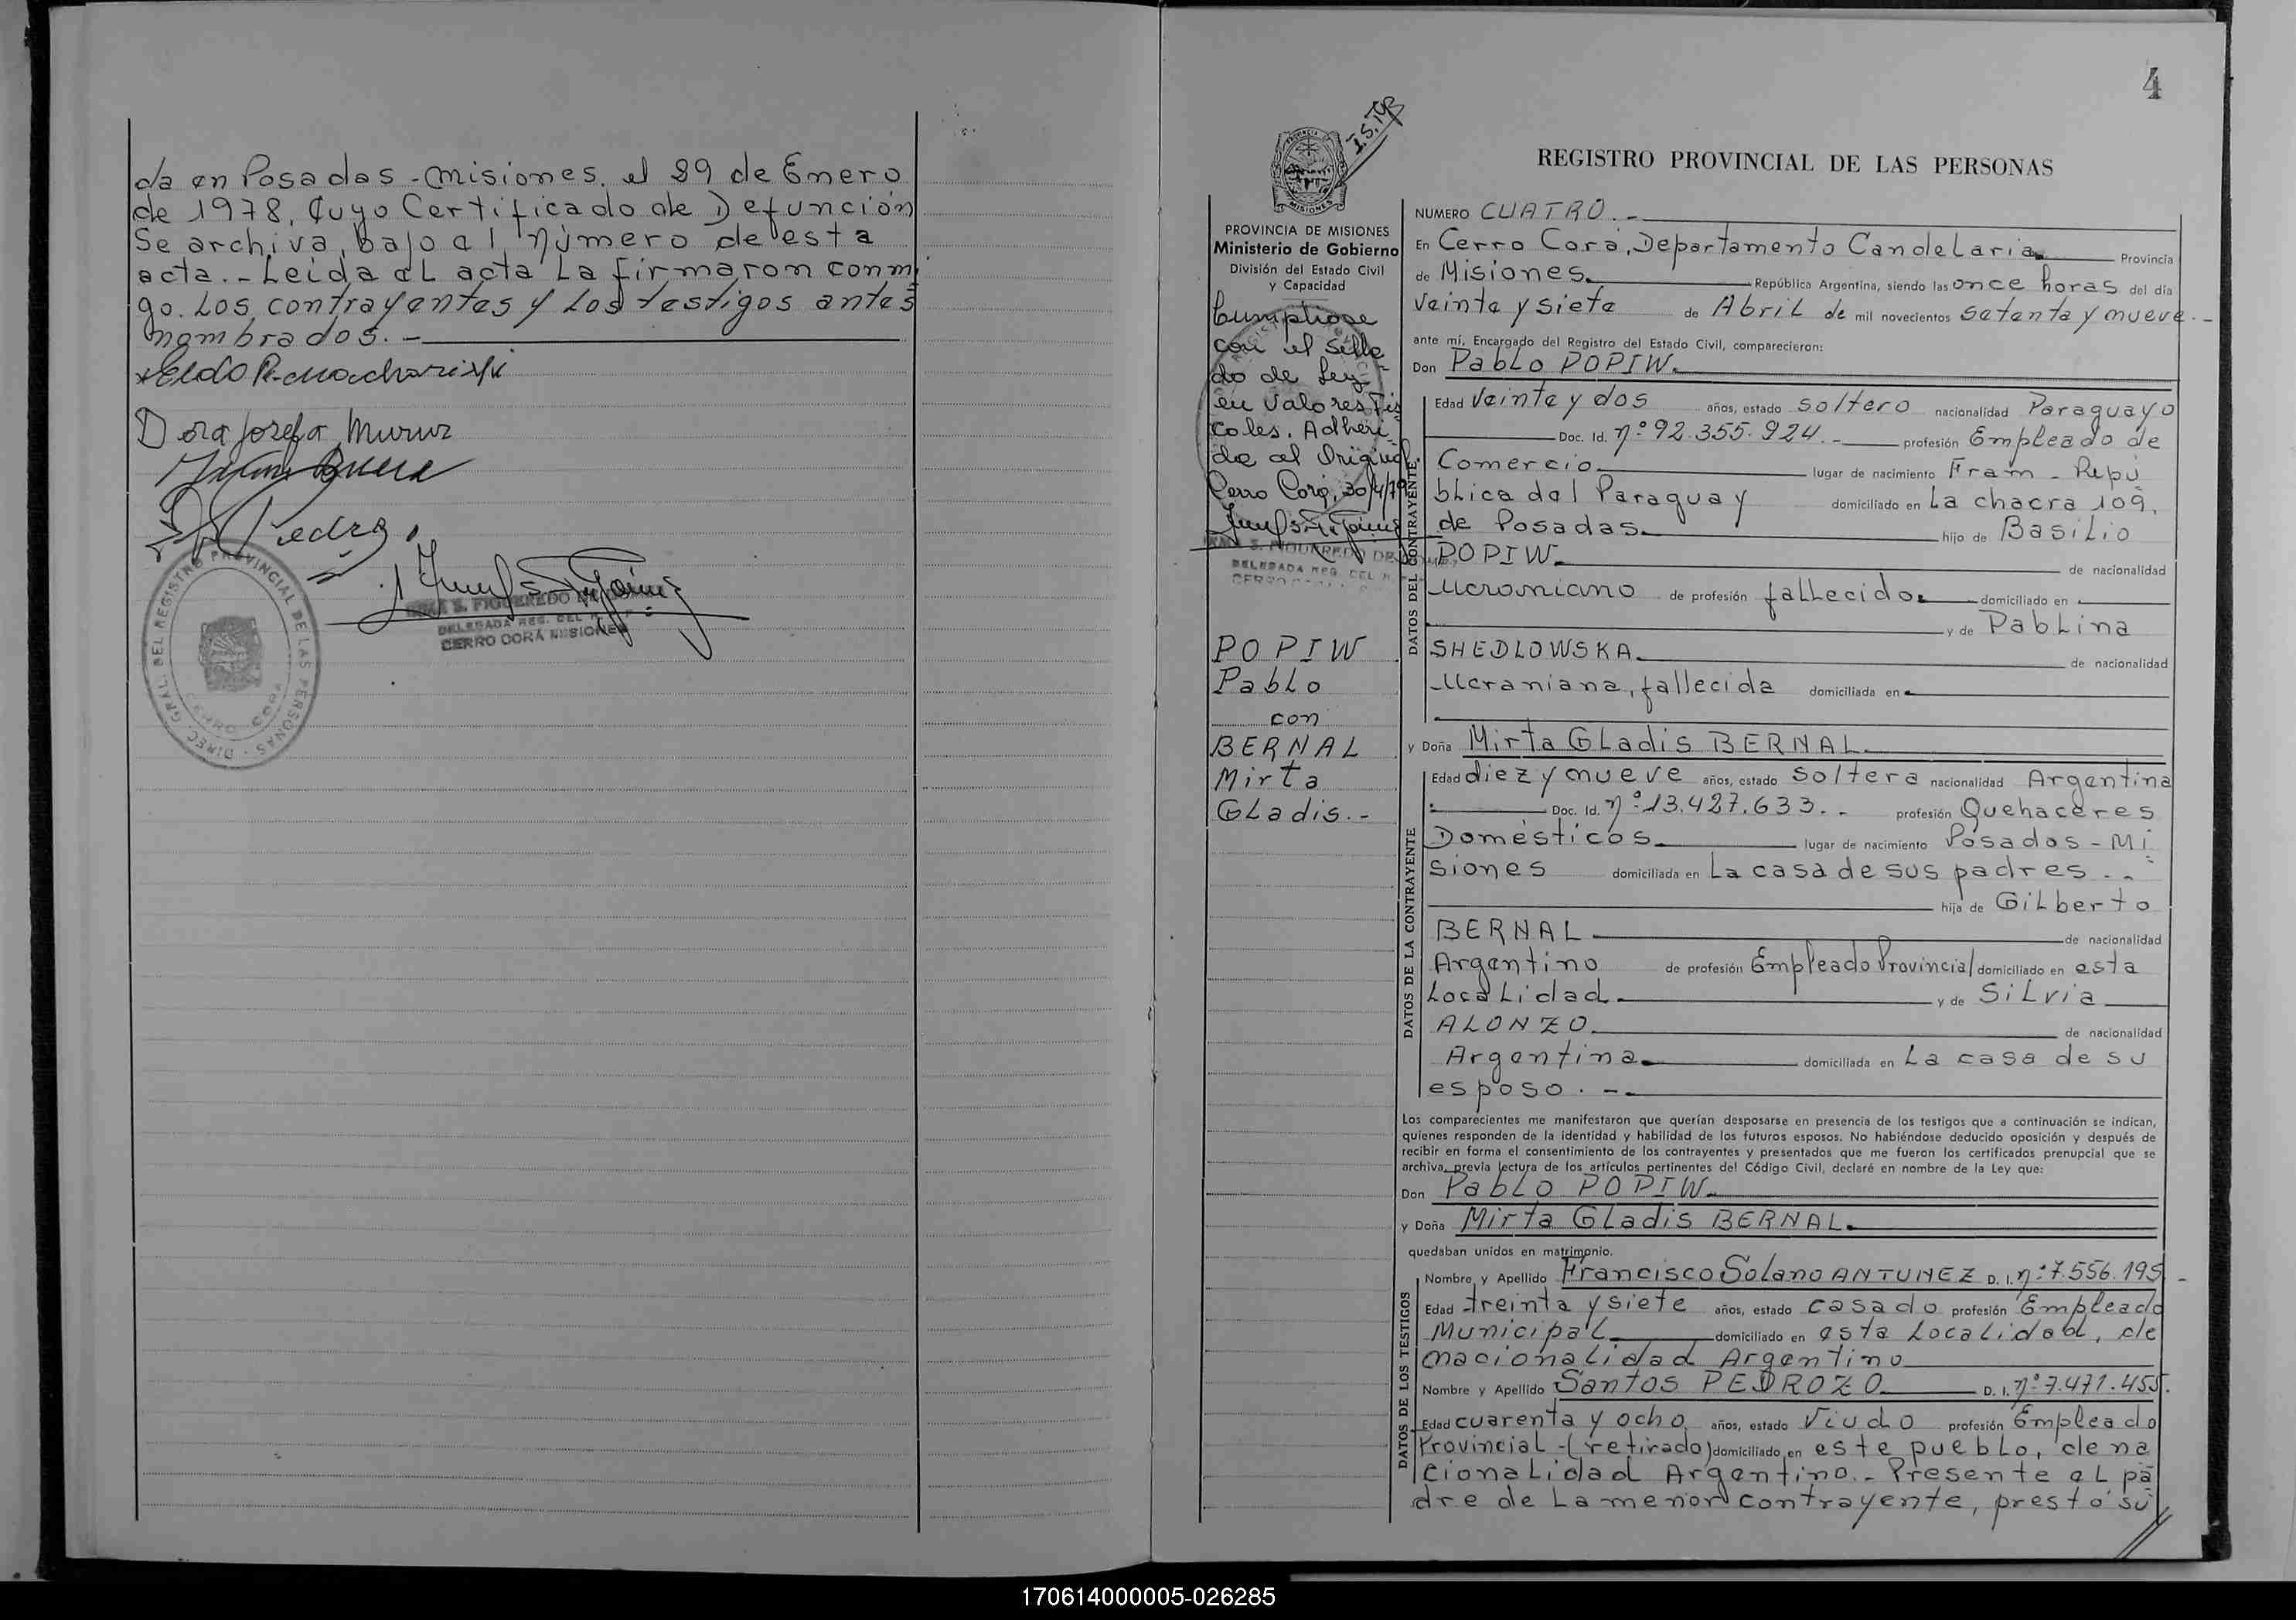 da en Posadas - Misiones, el 29 de Enero
de 1978, Cuyo Certificado de Defunción
Se archiva, bajo al número de esta
acta.- Leida al acta La firmaron conmi
go. Los contrayentes y Los testigos antes
nombrados.-
Dora Josefa
DIREC. GRAL. DEL REGISTRO PROVINCIAL DE LAS PERSONAS
CERRO CORA
S. FIGUEREDO DE
DELEGADA REG. DEL
CERRO CORÁ MISIONES
4
REGISTRO PROVINCIAL DE LAS PERSONAS
MISIONES
PROVINCIA DE MISIONES
Ministerio de Gobierno
División del Estado Civil
y Capacidad
Cumpliose
con el Sella
do de Ley
en Valores Fis
cales. Adheri
do al Original
Cerro Corá, 30/4/79
S. FIGUEREDO DE
DELEGADA REG. DEL
CERRO
POPIW
Pablo
con
BERNAL
Mirta
Gladis.-
NUMERO CUATRO.-
En Cerro Corá, Departamento Candelaria Provincia
de Misiones. República Argentina, siendo las once horas del día
Veinte y siete de Abril de mil novecientos setenta y nueve.-
ante mí, Encargado del Registro del Estado Civil, comparecieron:
Don Pablo POPIW.
DATOS DEL CONTRAYENTE
Edad Veinte y dos años, estado soltero nacionalidad Paraguayo
Doc. Id. nº 92.355.924.- profesión Empleado de
Comercio. lugar de nacimiento Fram - Repú
blica del Paraguay domiciliado en La chacra 109,
de Posadas. hijo de Basilio
POPIW. de nacionalidad
Ucraniano de profesión fallecido. domiciliado en
y de Pablina
SHEDLOWSKA. de nacionalidad
Ucraniana, fallecida domiciliada en
y Doña Mirta Gladis BERNAL.
DATOS DE LA CONTRAYENTE
Edad diez y nueve años, estado soltera nacionalidad Argentina
Doc. Id. nº 13.427.633.- profesión Quehaceres
Domésticos. lugar de nacimiento Posadas - Mi
siones domiciliada en La casa de sus padres.-
hija de Gilberto
BERNAL de nacionalidad
Argentino de profesión Empleado Provincial domiciliado en esta
Localidad. y de Silvia
ALONZO. de nacionalidad
Argentina. domiciliada en La casa de su
esposo.-
Los comparecientes me manifestaron que querían desposarse en presencia de los testigos que a continuación se indican,
quienes responden de la identidad y habilidad de los futuros esposos. No habiéndose deducido oposición y después de
recibir en forma el consentimiento de los contrayentes y presentados que me fueron los certificados prenupcial que se
archiva, previa lectura de los artículos pertinentes del Código Civil, declaré en nombre de la Ley que:
Don Pablo POPIW.
y Doña Mirta Gladis BERNAL.
quedaban unidos en matrimonio.
DATOS DE LOS TESTIGOS
Nombre y Apellido Francisco Solano ANTUNEZ D. I. nº 7.556.195 -
Edad treinta y siete años, estado casado profesión Empleado
Municipal. domiciliado en esta Localidad, de
nacionalidad Argentino
Nombre y Apellido Santos PEDROZO. D. I. nº 7.471.455.
Edad cuarenta y ocho años, estado Viudo profesión Empleado
Provincial - (retirado) domiciliado en este pueblo, de na
cionalidad Argentino.- Presente el pa
dre de La menor contrayente, prestó su
170614000005-026285